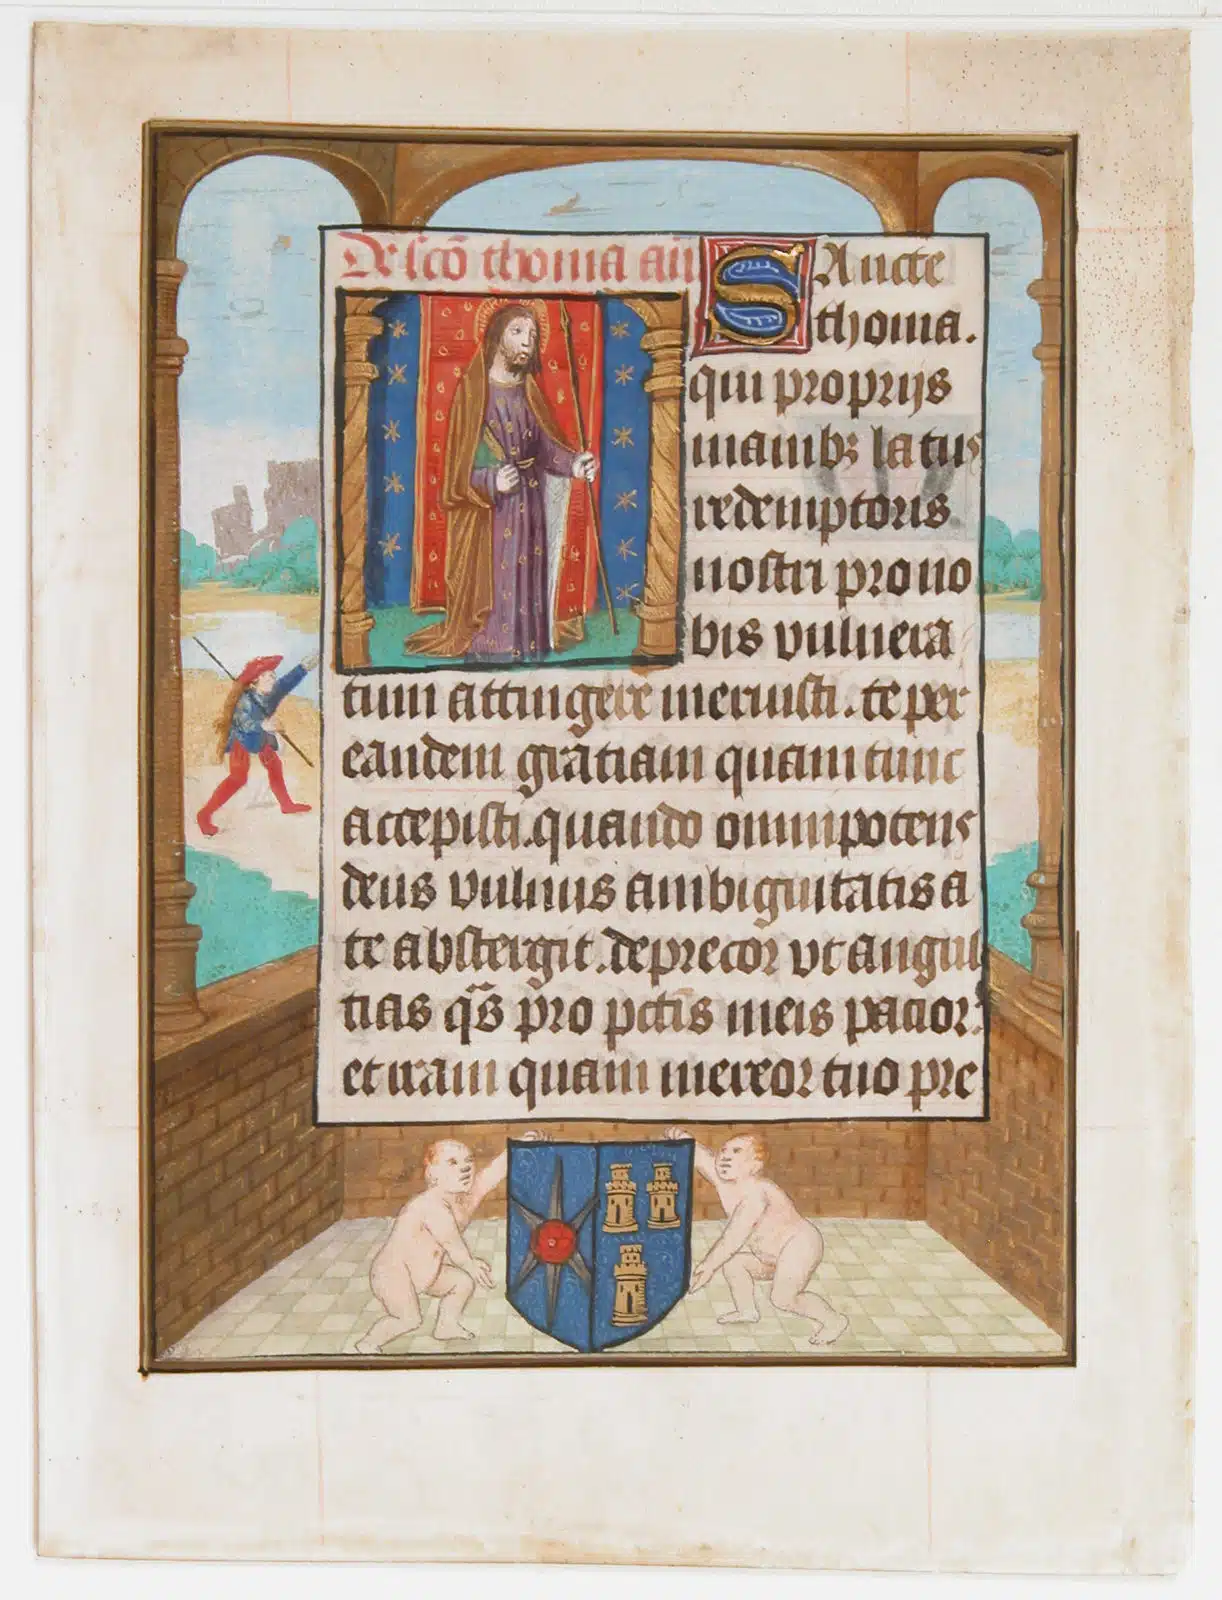 De scō thoma añ
Sancte
thoma.
qui proprijs
manibꝫ latus
redemptoris
nostri pro no
bis vulnera
tum attingere meruisti. te per
eandem gratiam quam tunc
accepisti. quando omnipotens
deus vulnus ambiguitatis a
te abstergit. deprecor vt angus
tias q̄s pro pctīs meis pacior.
et iram quam mereor tuo pre